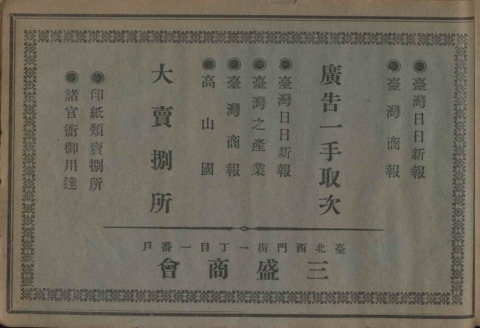 ●臺灣日日新報
●臺灣商報
廣告一手取次
●臺灣日日新報
●臺灣之產業
●臺灣商報
●高山國
大賣捌所
●印紙類賣捌所
●諸官衙御用達
臺北西門街一丁目一番戶
三盛商會